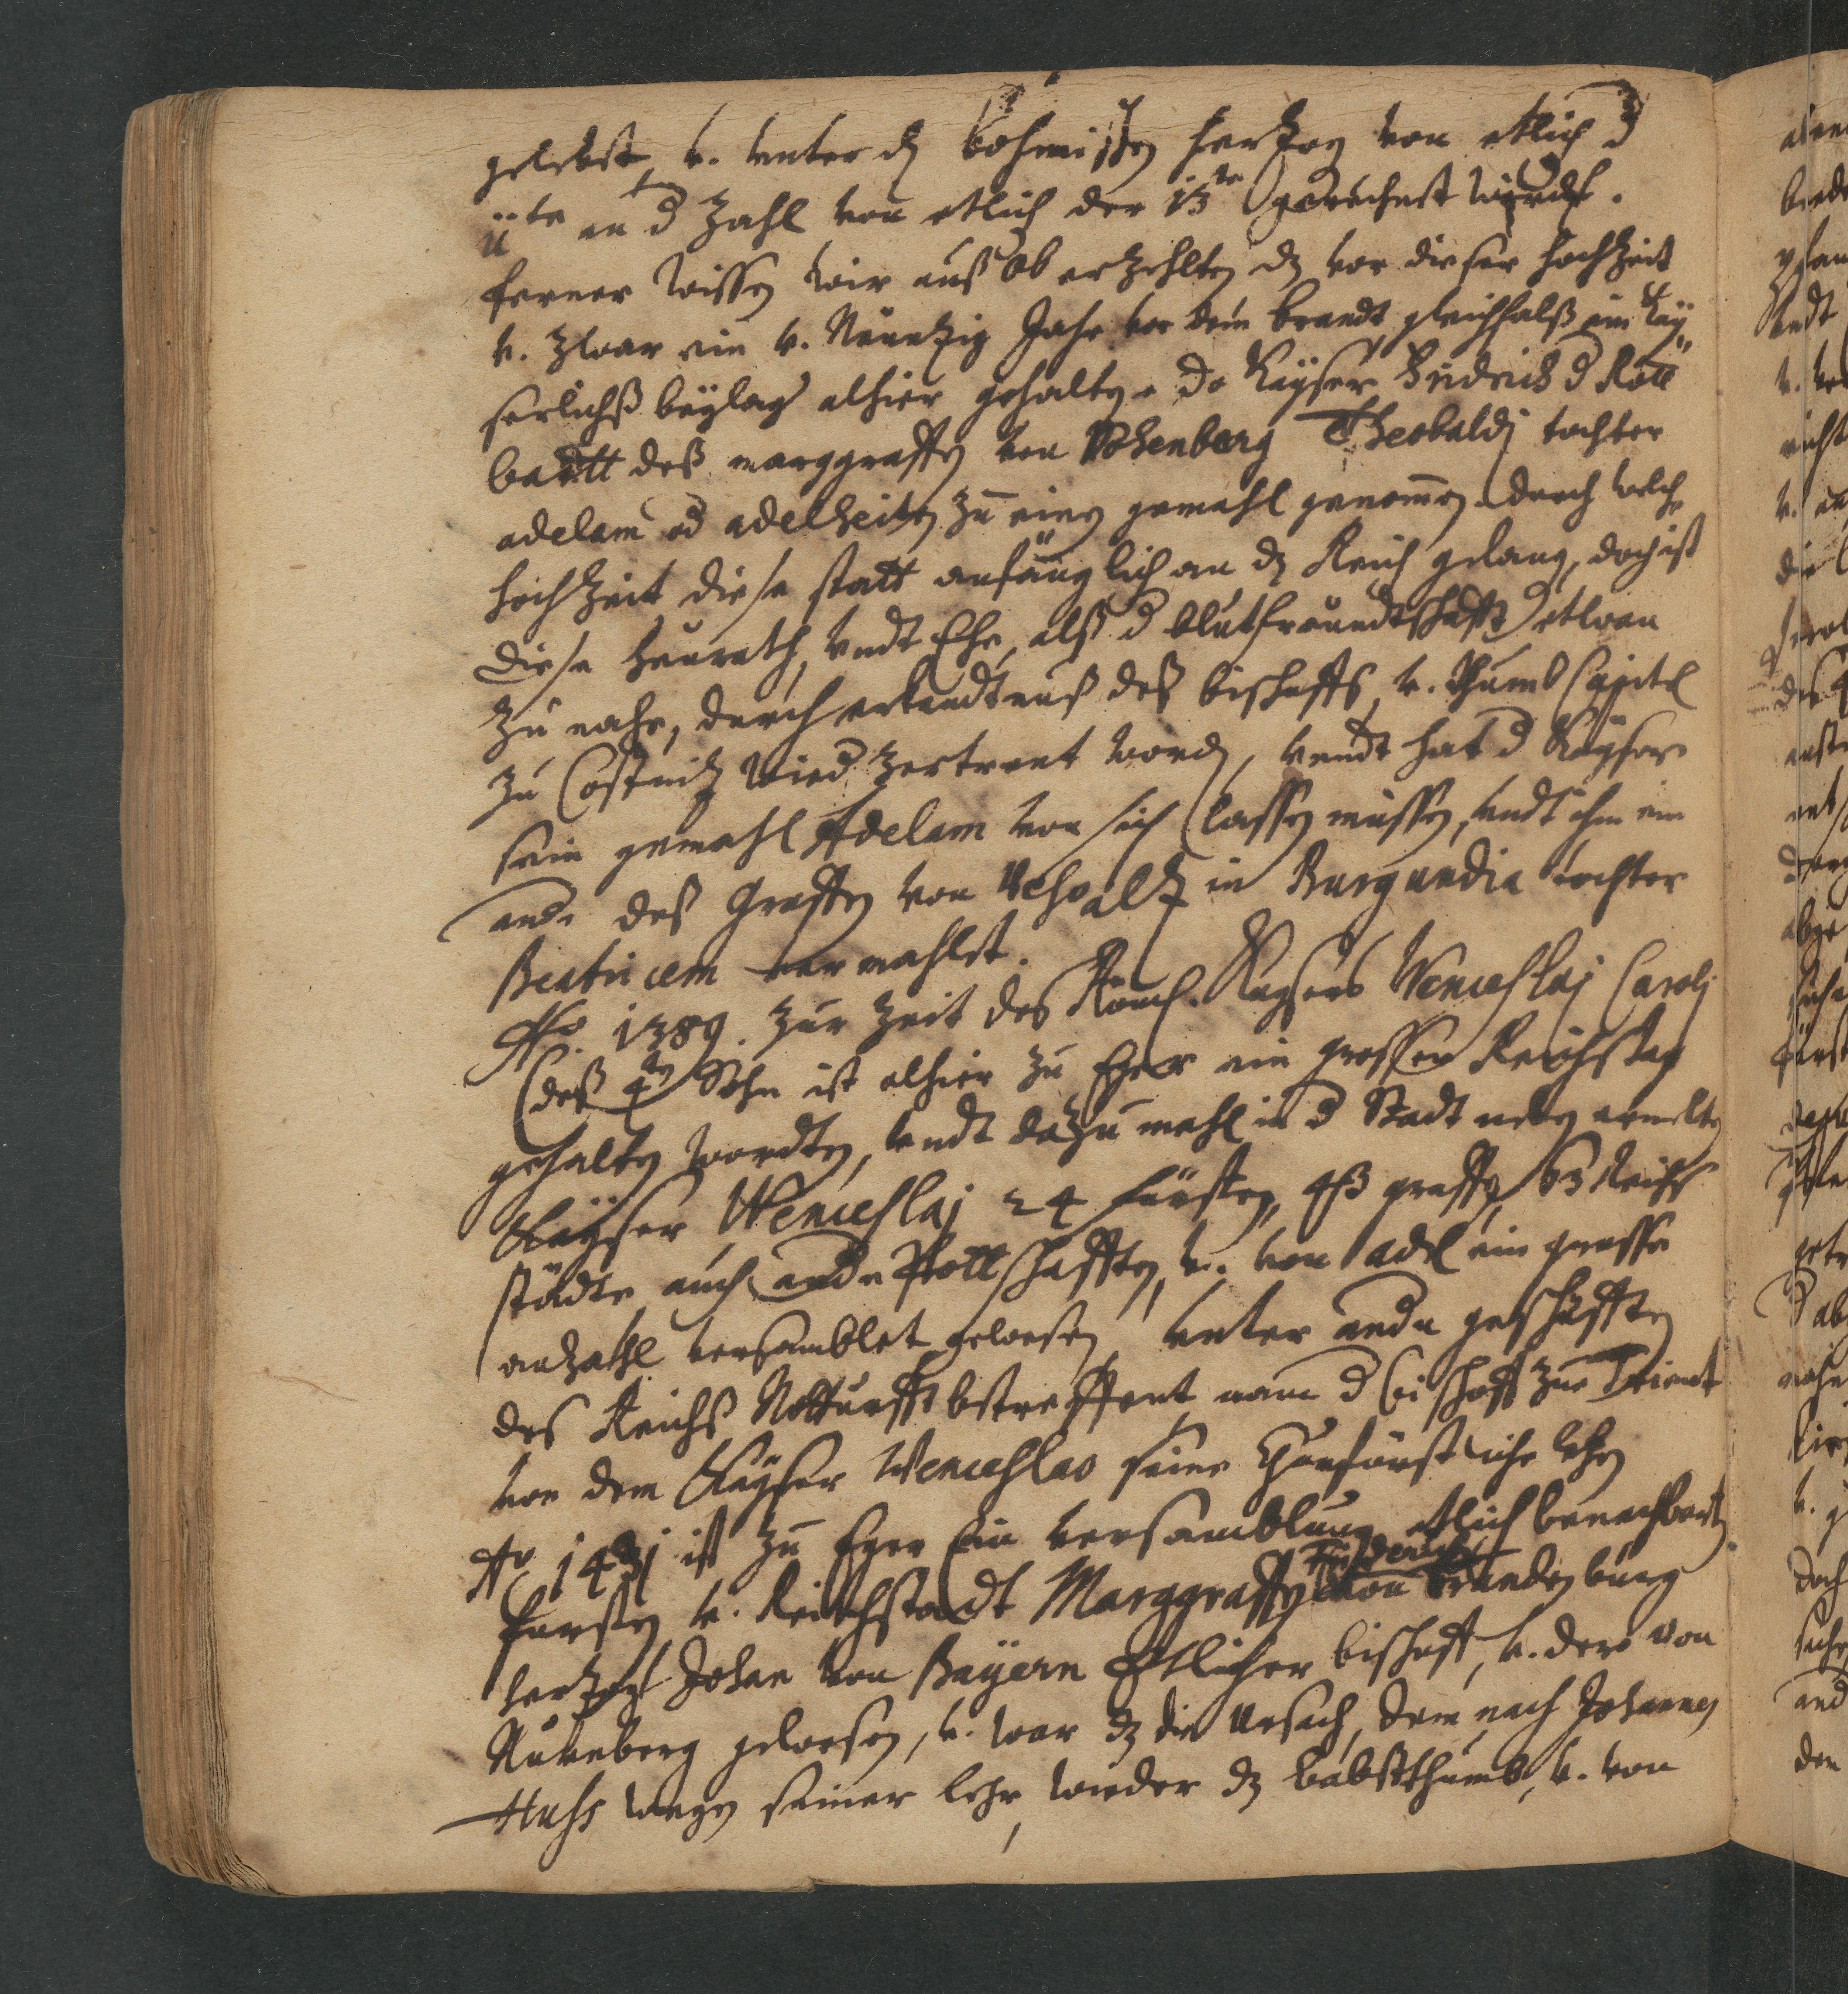 gelebt, v. unter dz böhmischen hertzog von etlich d
11te an d Zahl von etlich der 13te gerechnet würdt.
ferner wissen wir auß ob erzehlten dz vor dieser hochzeit
v. zwar ein v. Neuntzig Jahr vor dem brandt gleichfalß ein Käÿ
serlichß beÿlag alhier gehalten. da Kaÿser Fridrich d Rott
bardtt deß marggraffen von Vohenberg Theobaldj tochter
adelam od adelheiten zu einen gemahl genommen. durch welche
hochzeit diese statt anfänglich an dz Reich gelang, doch ist
diese heurath, undt Ehe, alß d blutfreundtschafft etwan
zu nahe, durch erkandtnuß deß bischoffs, v. Thumb Capitel
zu Costnitz wied zertrent worden, undt hat d Kaÿser
sein gemahl Adelam von sich lassen müssen, undt ihm ein
ande deß Graffen von in Burgundia tochter
Beatricem vermahlet.
Ao. 1389. zur Zeit des Römk. Kaÿsers Wenceslaj Carolj
deß 4ten Sohn ist alhier zu Eger ein grossen Reichstag
gehalten wordten, undt dazu mahl in d Stadt neben ermelten
Kaÿser Wenceslaj 24 fürsten, 43 graffen, 63 Reichs
städte, auch ande Pottschafften, v. von adel ein grosse
anzahl versamblet gewesen, unter andn geschäfften
des Reichß Notturfft betreffent nam d bischoff zue Trient
von dem Kaÿser Wenceslao seine Churfürstliche lehen
Ao. 1431 ist zu Eger Ein versamblung etlich benachbarten
fürsten v. Reichstädt Marggraffen Friderich von brandenburg
hertzog Johan von Baÿern Etlicher bischoff, v. dero von
Nürnberg gewesen, v. war dz die Ursach, dem nach Johannes
Huss wegen seiner lehr, wieder dz babstthumb, v. von